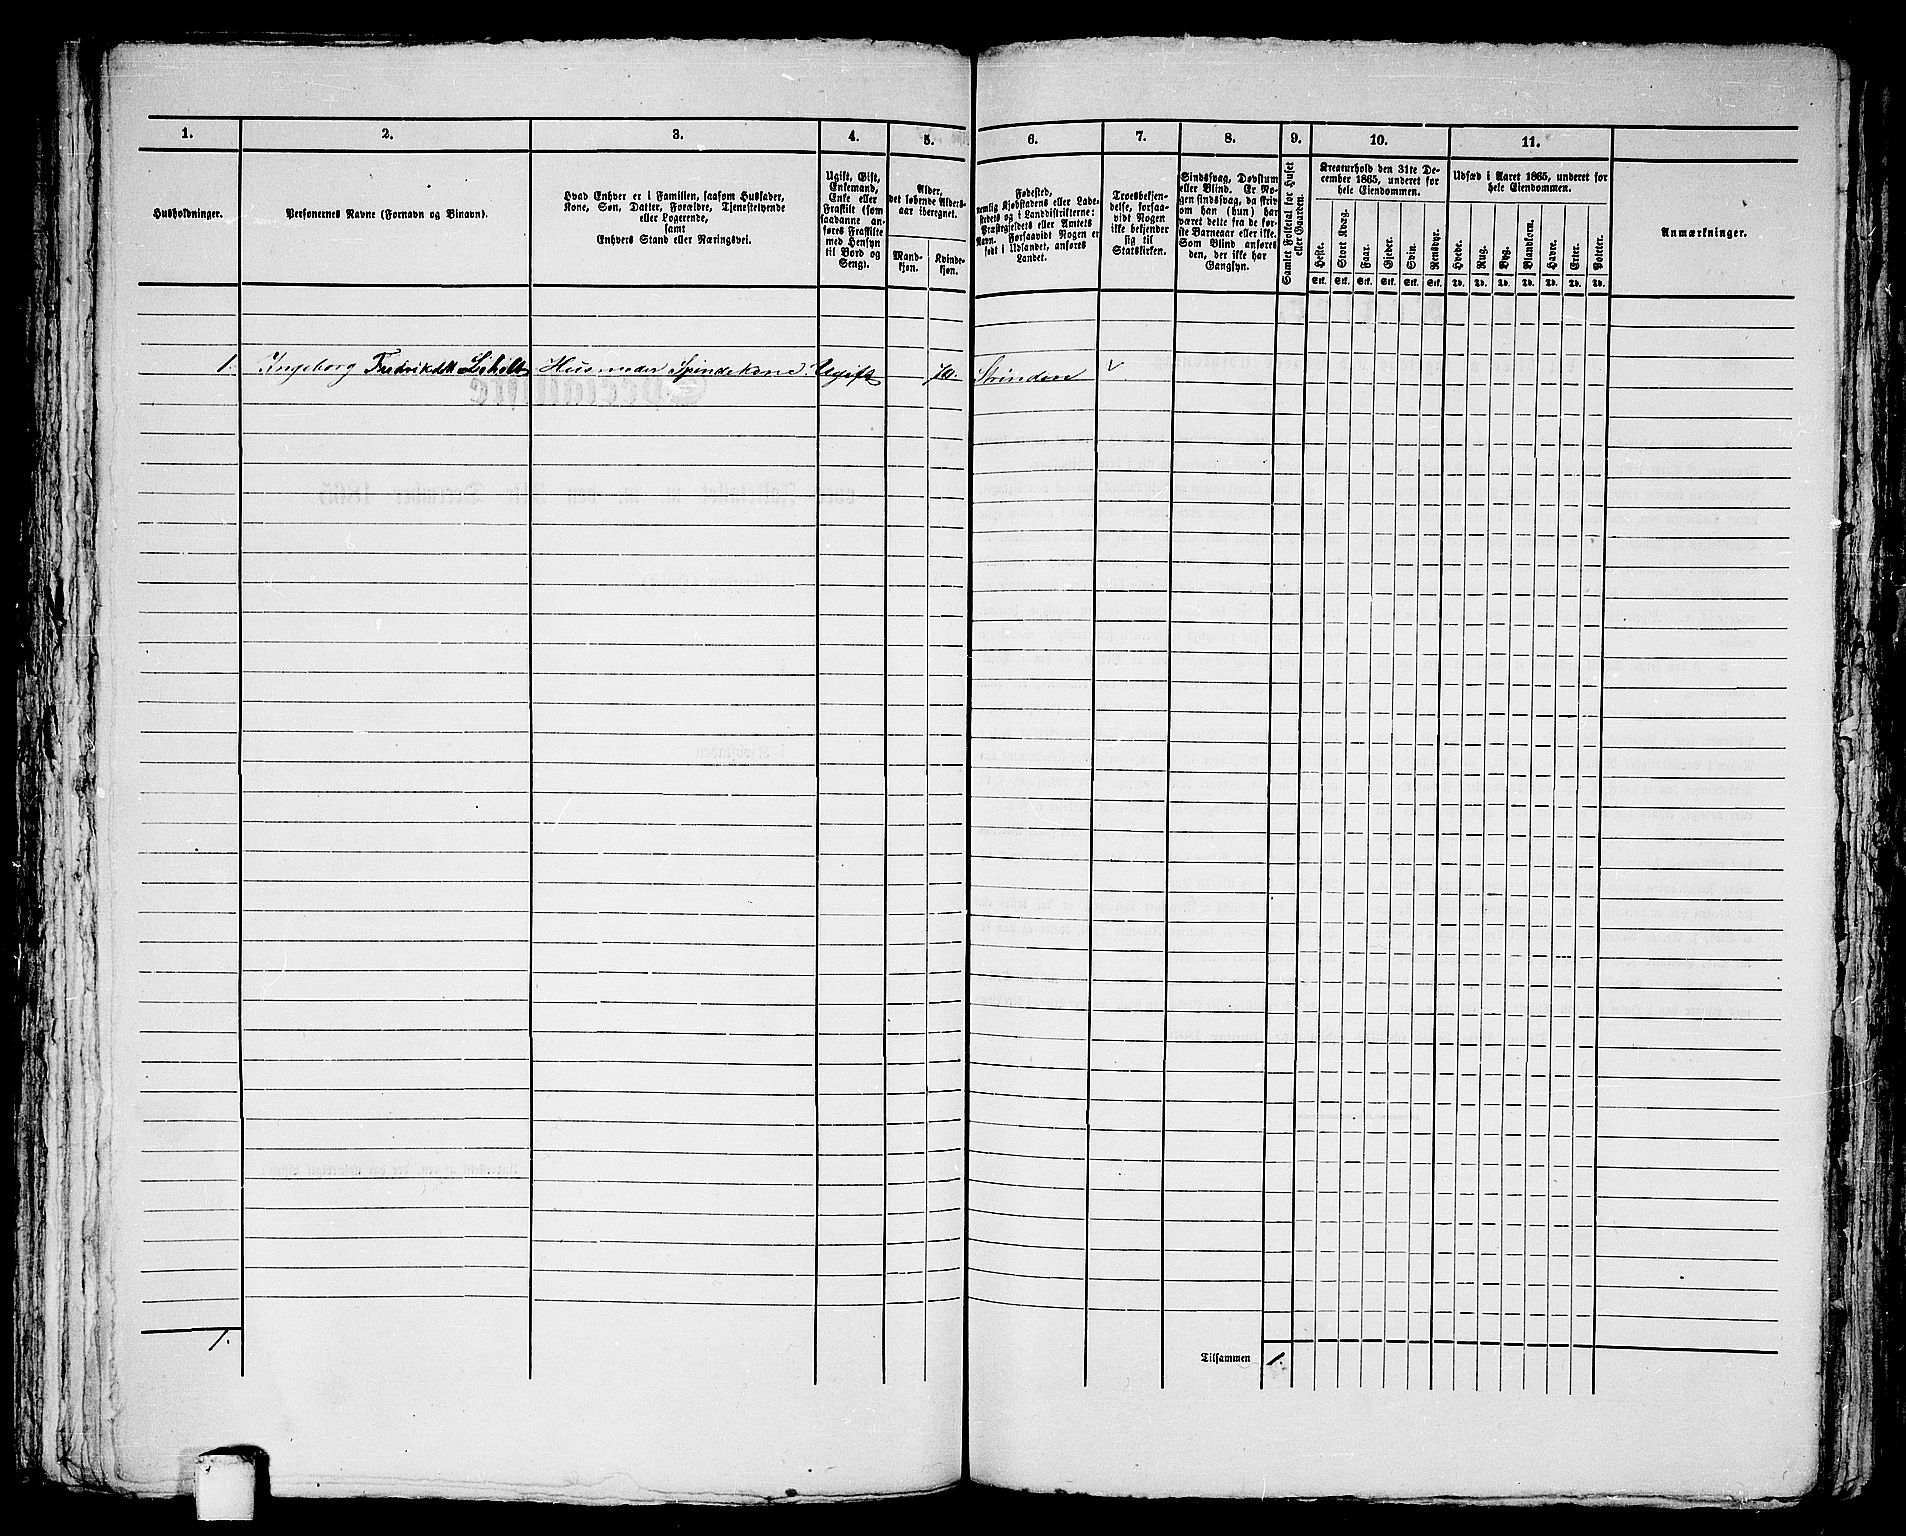 1. 2. 3. 4. 5. 6. 7. 8. 9. 10. 11.
Husholdninger.
Personernes Navne (Fornavn og Binavn).
Hvad Enhver er i Familien, saasom Husfader,
Kone, Søn, Datter, Forældre, Tjenestetyende
eller Logerende,
samt
Enhvers Stand eller Næringsvei.
Ugift, Gift,
Enkemand,
Enke eller
Fraskilt (som
saadanne an-
føres Fraskilte
med Hensyn
til Bord og
Seng).
Alder,
det løbende Alders-
aar iberegnet.
Mand-
kjøn.
Kvinde-
kjøn.
Fødested,
nemlig Kjøbstadens eller Lade-
stedets og i Landdistrikterne:
Præstegjeldets eller Amtets
Navn. Forsaavidt Nogen er
født i Udlandet, anføres
Landet.
Troesbekjen-
delse, forsaa-
vidt Nogen
ikke bekjender
sig til
Statskirken.
Sindssvag, Døvstum
eller Blind. Er No-
gen sindssvag, da skriv
om han (hun) har
været dette fra de før-
ste Barneaar eller ikke.
Som Blind anføres
den, der ikke har
Gangsyn.
Samlet Folketal for Huset
eller Gaarden.
Kreaturhold den 31te De-
cember 1865, underet for
hele Eiendommen.
Heste. Stort Kvæg. Faar. Gjeder. Svin. Rensdyr.
Stk. Stk. Stk. Stk. Stk. Stk.
Udsæd i Aaret 1865, underet for
hele Eiendommen.
Hvede. Rug. Byg. Blandkorn. Havre. Erter. Poteter.
Td. Td. Td. Td. Td. Td. Td.
Anmærkninger.
1. Ingeborg Husmoder Spindekone. Ugift Strinden
1.
Tilsammen 1.